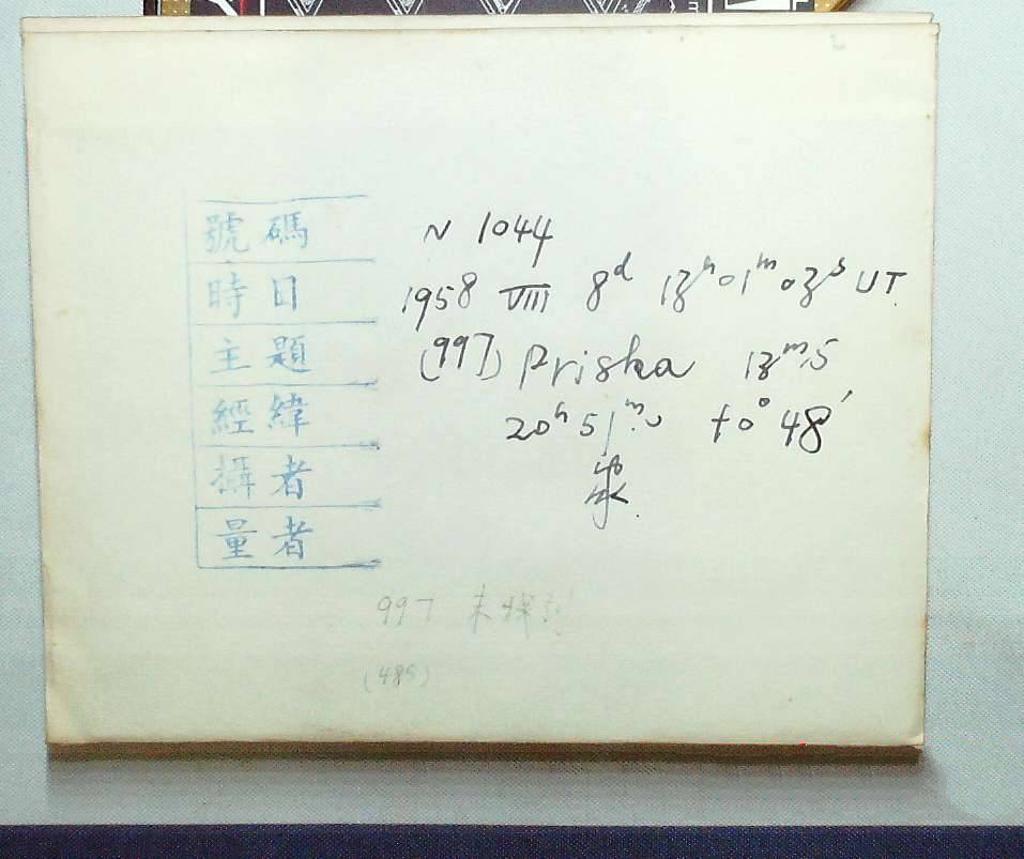 號碼 N 1044
時日 1958 VIII 8ᵈ 13ʰ 01ᵐ 03ˢ UT.
主題 (997) Priska 13ᵐ.5
經緯 20ʰ 51ᵐ.0 +0° 48′
攝者
量者
997 未
(485)